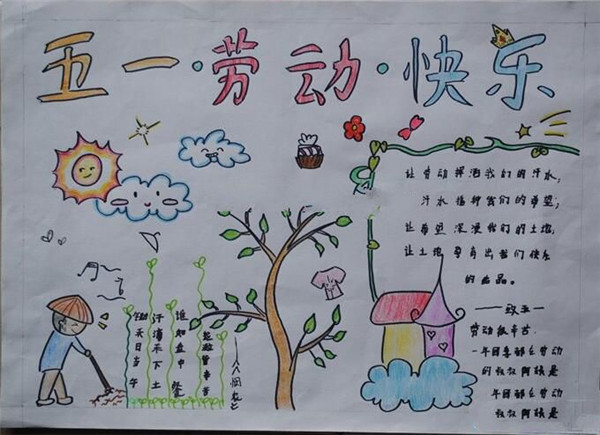 五一·劳动·快乐
让劳动挥洒我们的汗水，
汗水播种我们的希望，
让希望 我们的土地，
让土地孕育出我们快乐
的 品。
——致五一
劳动最辛苦.
一年四季都在劳动
的叔叔阿姨是
年四季都在劳动
叔叔阿姨是
锄禾日当午
汗滴禾下土
谁知盘中餐
粒粒皆辛苦
——《悯农》